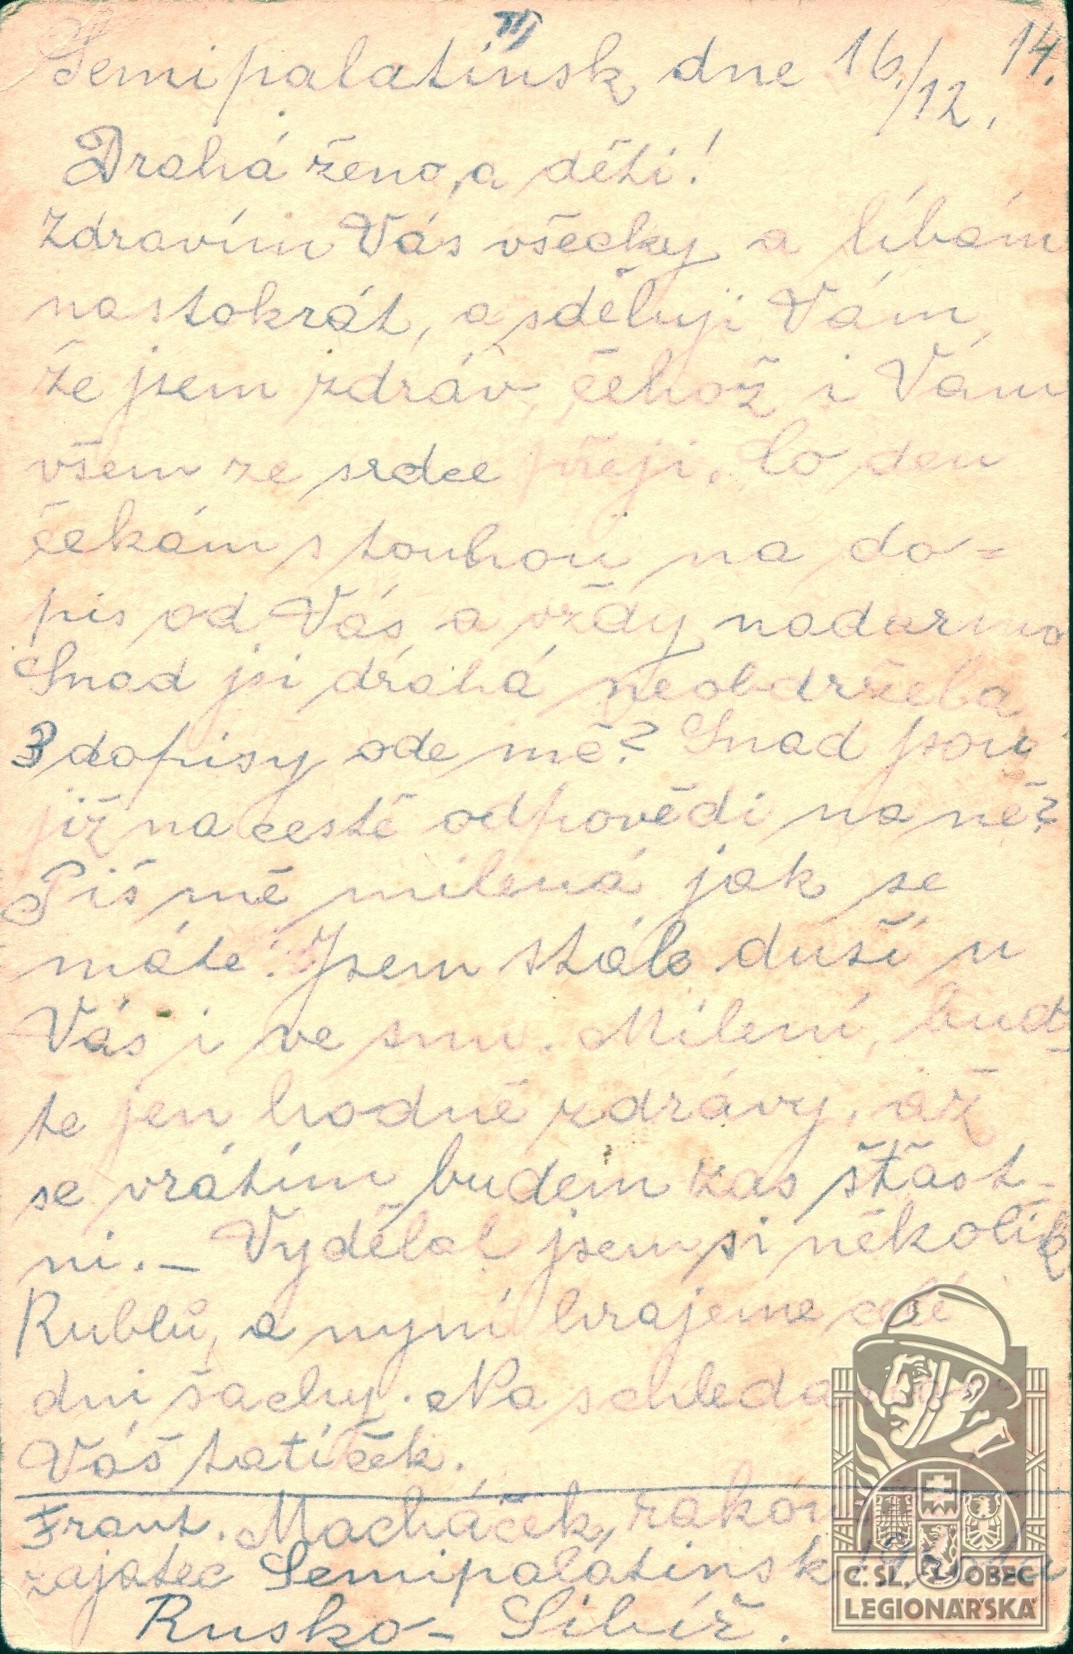 III
Semipalatinsk dne 16./12. 14.
Drahá ženo, a děti!
Zdravím Vás všecky a líbám
nastokrát, a sděluji Vám,
že jsem zdráv, čehož i Vám
všem ze srdce přeji. Co den
čekám s touhou na do=
pis od Vás a vždy nadarmo
Snad jsi dráhá neobdržela
3 dopisy ode mě? Snad jsou
již na cestě odpovědi na ně?
Piš mě milená jak se
máte. Jsem stále duší u
Vás i ve snu. Milení, buď-
te jen hodně zdrávy, až
se vrátím budem zas šťast-
ni. — Vydělal jsem si několik
Rublů, a nyní hrajeme celé
dni šachy. Na schleda
Váš tatíček.
Frant. Macháček,
zajatec Semipalatinsk
Rusko - Sibíř.
Č. SL. OBEC
LEGIONÁŘSKÁ